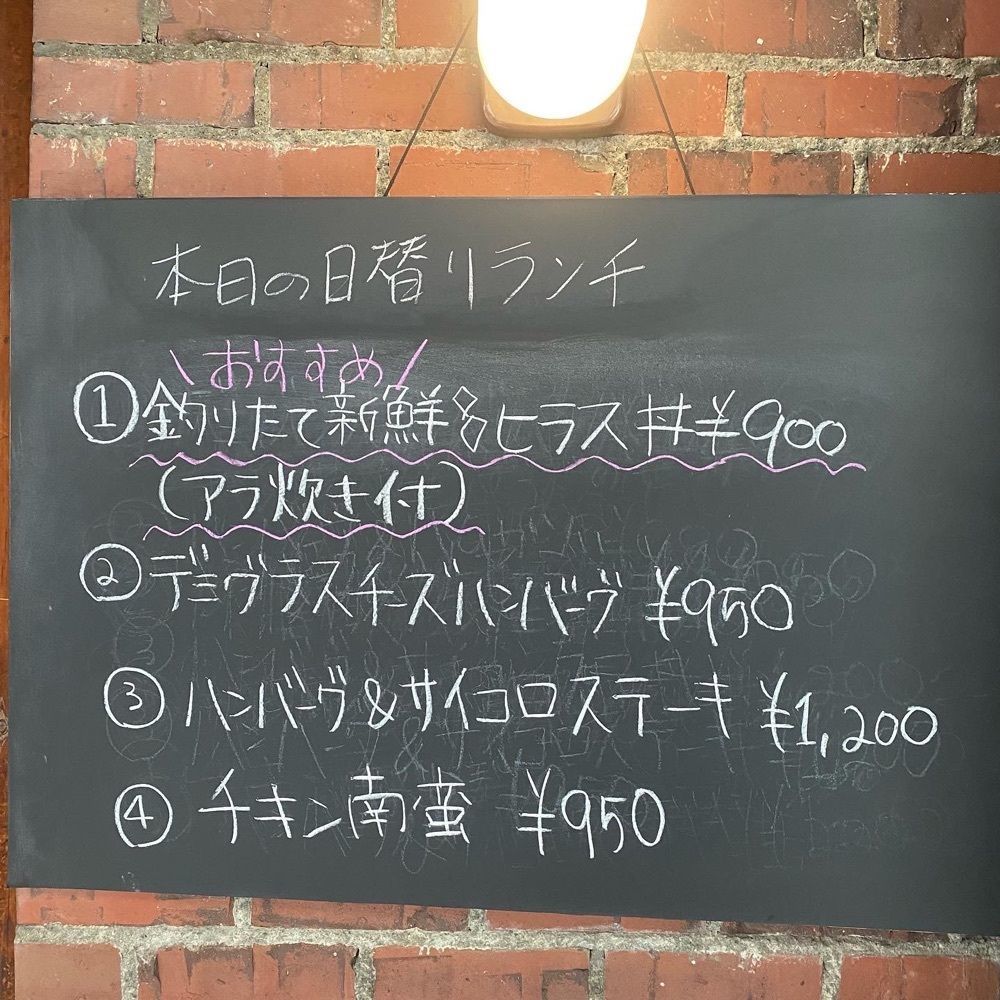 本日の日替りランチ
\おすすめ/
①釣りたて新鮮!!ヒラス丼¥900
(アラ炊き付)
②デミグラスチーズハンバーグ ¥950
③ハンバーグ&サイコロステーキ ¥1,200
④チキン南蛮 ¥950